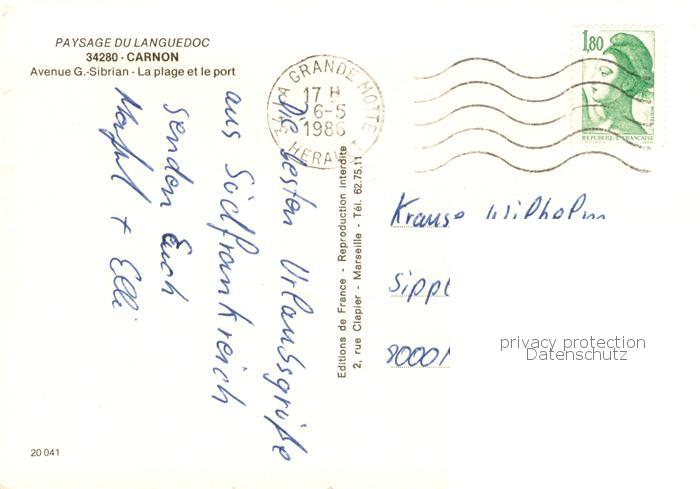 PAYSAGE DU LANGUEDOC
34280 - CARNON
Avenue G.-Sibrian - La plage et le port
34 LA GRANDE MOTTE
17 H
6-5
1986
HERAULT
1,80
REPUBLIQUE FRANÇAISE
Die besten Urlaubsgrüße
aus Südfrankreich
senden Euch
+ Elli
Editions de France - Reproduction interdite
2, rue Clapier - Marseille - Tél. 62.75.11
Krause Wilhelm
Sippl
8000
privacy protection
Datenschutz
20 041